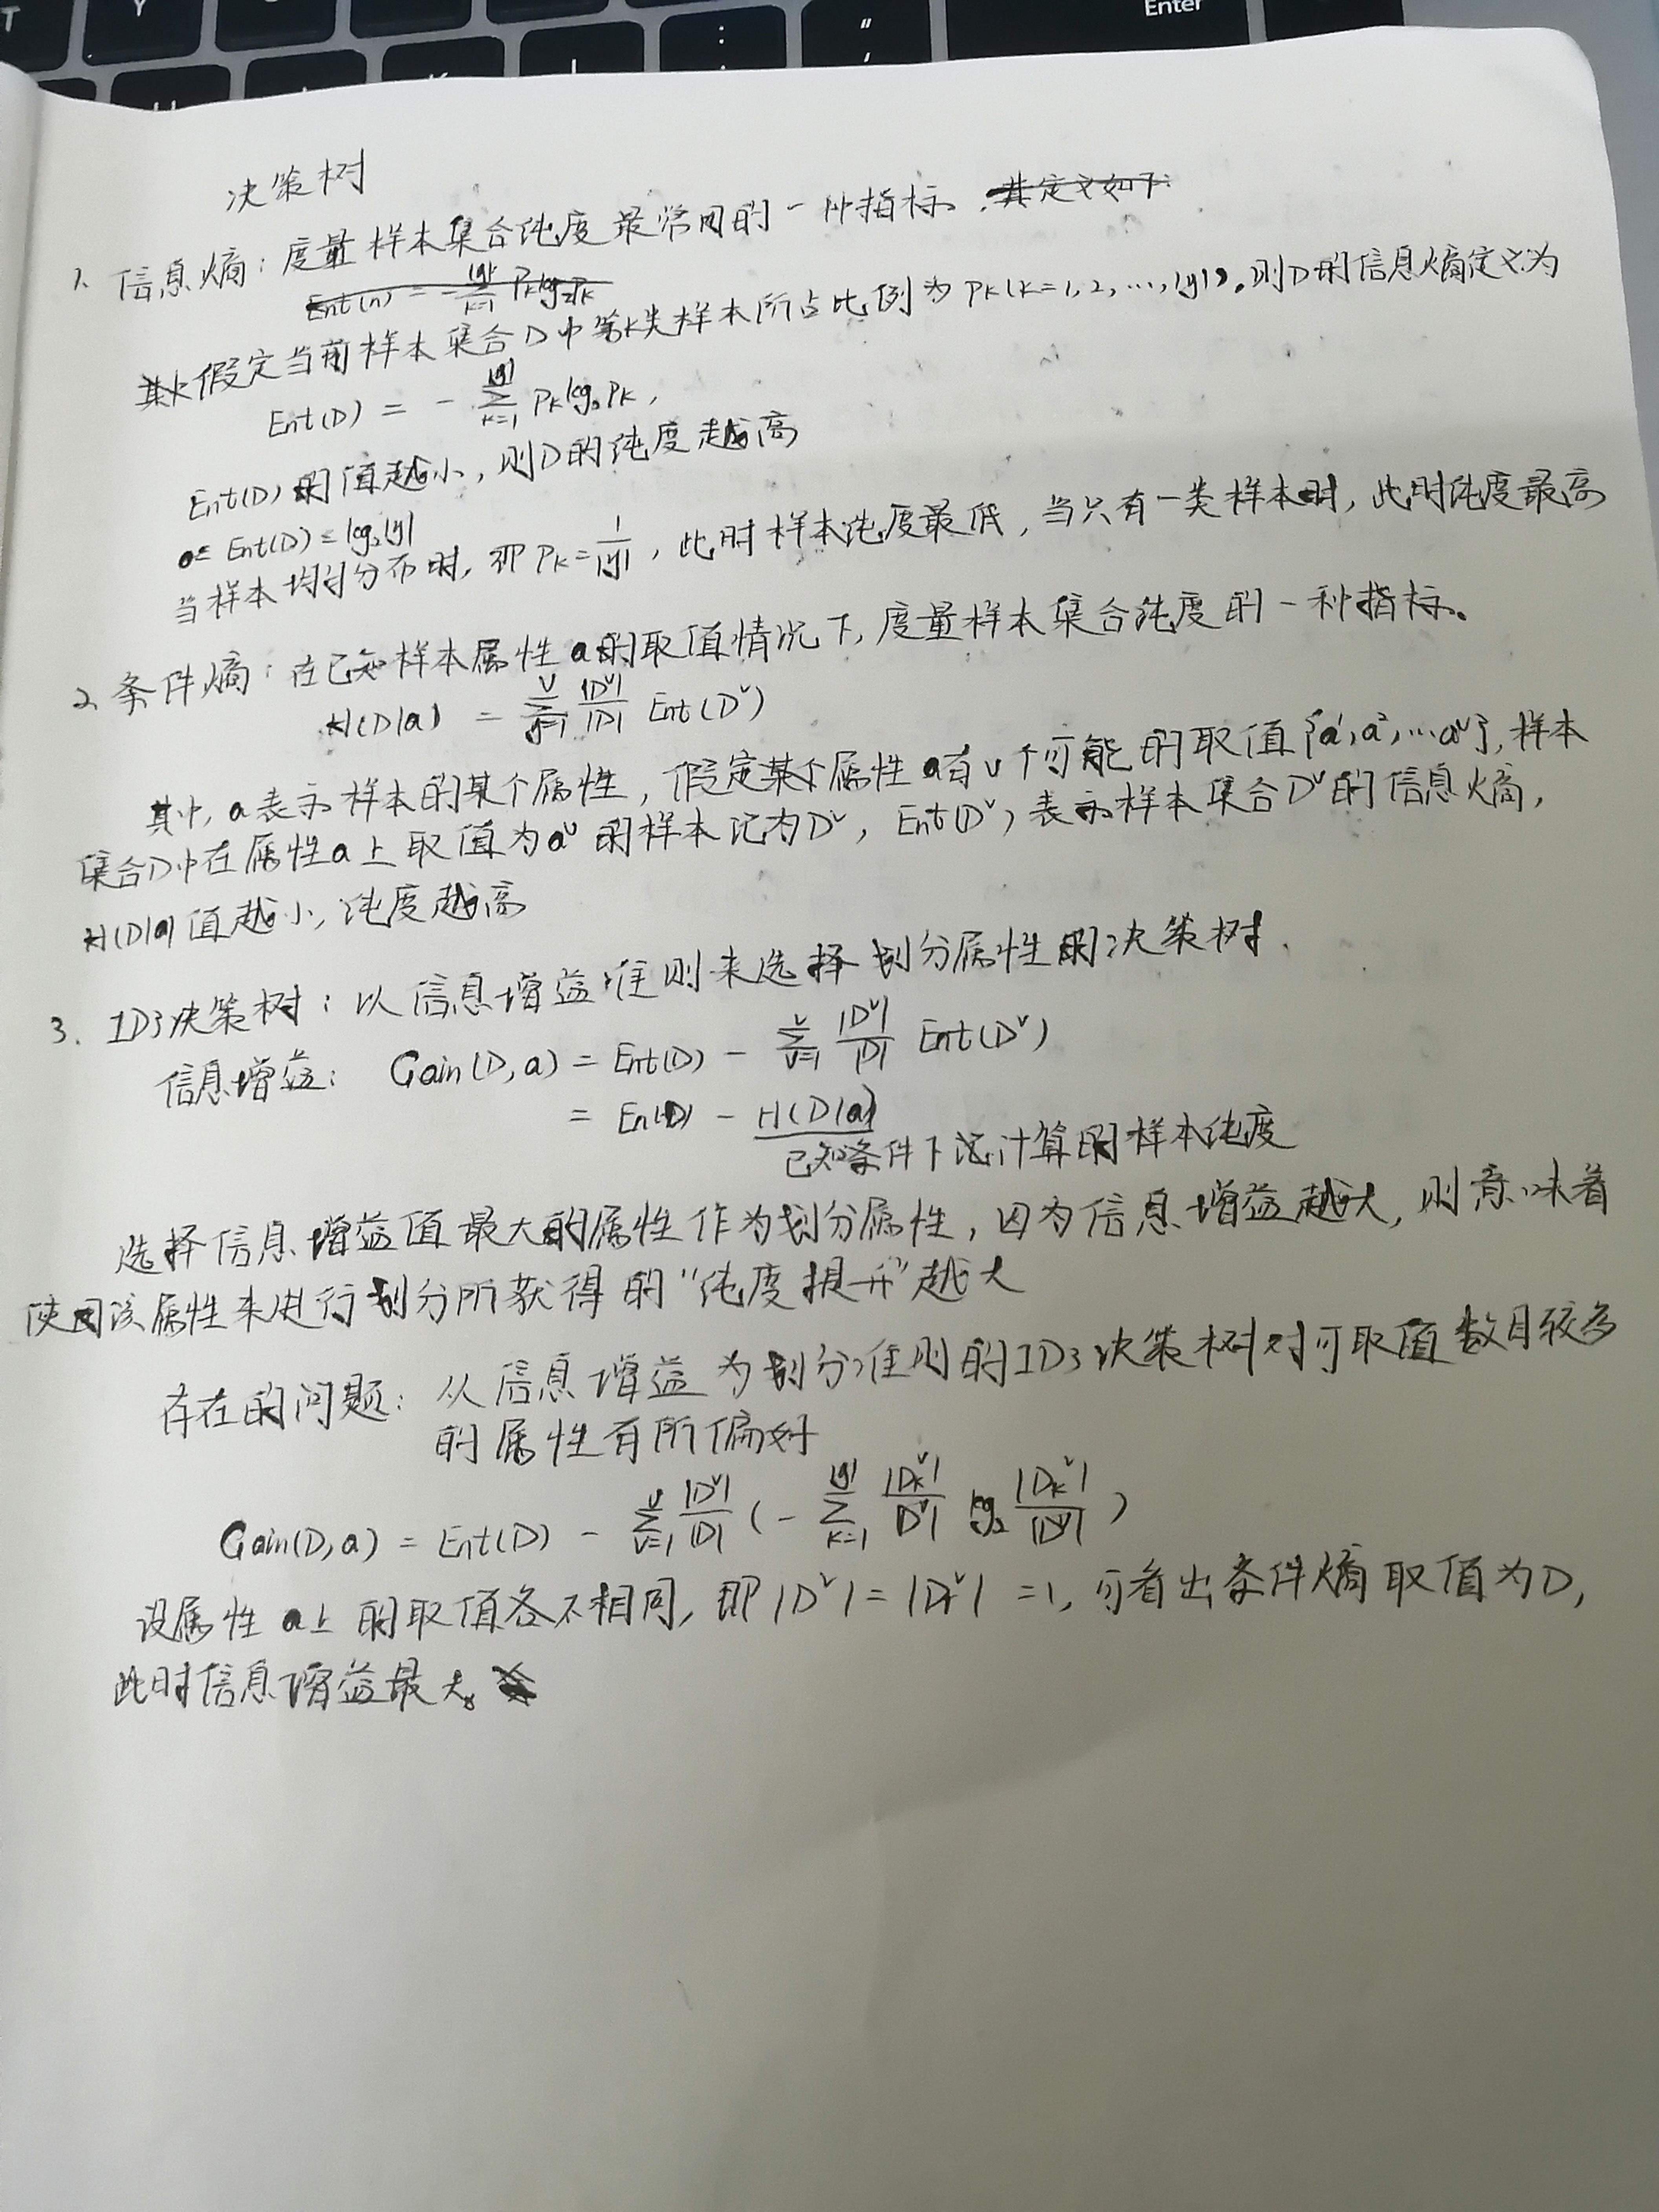 T Y : " ' Enter
决策树
1、信息熵：度量样本集合纯度最常用的一种指标.其定义如下:
Ent(D) = -∑_{k=1}^{|y|} P_k log_2 P_k
假定当前样本集合D中第K类样本所占比例为 P_K(K=1,2,…,|y|),则D的信息熵定义为
Ent(D) = -∑_{K=1}^{|y|} P_K log_2 P_K,
Ent(D)的值越小,则D的纯度越高
0≤ Ent(D) ≤ log_2|y|
当样本均匀分布时,即P_K=1/|y|,此时样本纯度最低,当只有一类样本时,此时纯度最高
2、条件熵：在已知样本属性a的取值情况下,度量样本集合纯度的一种指标。
H(D|a) = ∑_{v=1}^{V} |D^v|/|D| Ent(D^v)
其中,a表示样本的某个属性,假定某个属性a有V个可能的取值{a^1,a^2,…a^V},样本
集合D中在属性a上取值为a^v的样本记为D^v, Ent(D^v)表示样本集合D^v的信息熵,
H(D|a)值越小,纯度越高
3、ID3决策树：以信息增益准则来选择划分属性的决策树.
信息增益: Gain(D,a) = Ent(D) - ∑_{v=1}^{V} |D^v|/|D| Ent(D^v)
= Ent(D) - H(D|a)
已知条件下 计算的样本纯度
选择信息增益值最大的属性作为划分属性,因为信息增益越大,则意味着
使用该属性来进行划分所获得的"纯度提升"越大
存在的问题: 以信息增益为划分准则的ID3决策树对可取值数目较多
的属性有所偏好
Gain(D,a) = Ent(D) - ∑_{v=1}^{V} |D^v|/|D| (-∑_{K=1}^{|y|} |D_K^v|/|D^v| log_2 |D_K^v|/|D^v|)
设属性a上的取值各不相同,即|D^v|=|D_K^v|=1,可看出条件熵取值为0,
此时信息增益最大。